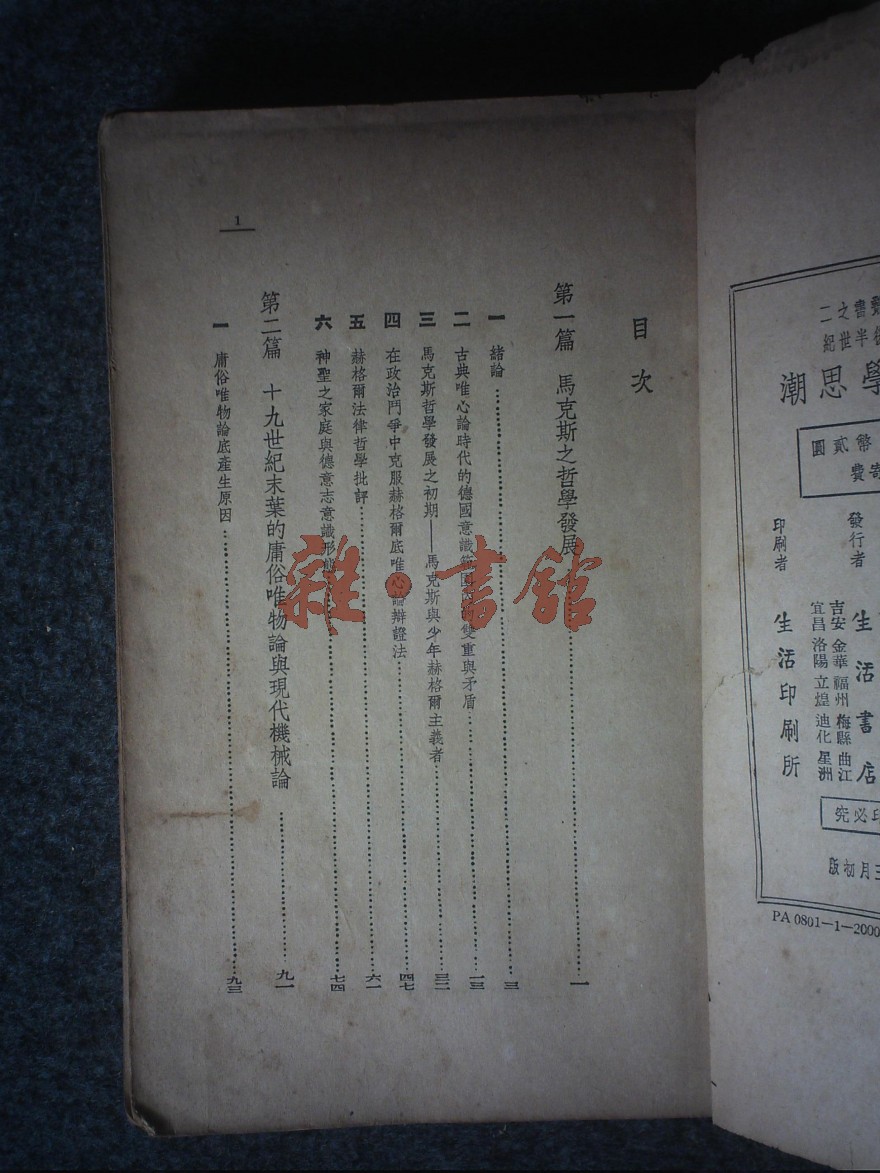 目次
第一篇 馬克斯之哲學發展……一
一 緒論……三
二 古典唯心論時代的德國意識 雙重與矛盾……一三
三 馬克斯哲學發展之初期——馬克斯與少年赫格爾主義者……三二
四 在政治鬥爭中克服赫格爾底唯心論辯證法……四七
五 赫格爾法律哲學批評……六一
六 神聖之家庭與德意志意識形……七四
第二篇 十九世紀末葉的庸俗唯物論與現代機械論……九一
一 庸俗唯物論底產生原因……九三
1
書之二
半世紀
學思潮
幣貳圓
寄費
發行者
印刷者
吉安 金華 福州 梅縣 曲江
宜昌 洛陽 立煌 迪化 星洲
生活書店
生活印刷所
印必究
三月初版
PA 0801—1—2000
雜·書館